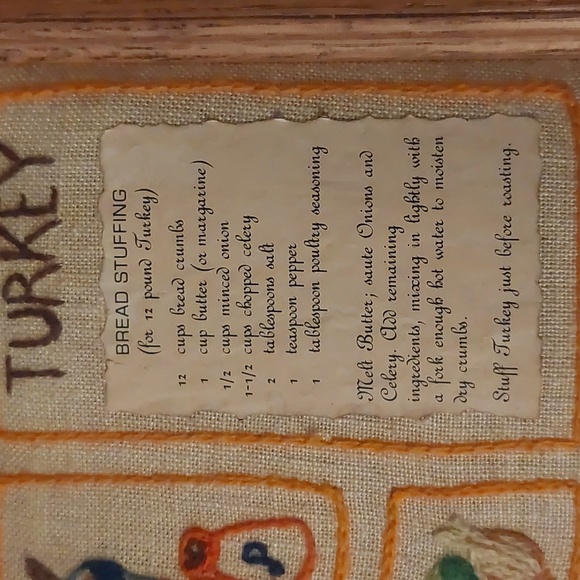 TURKEY
BREAD STUFFING
(for 12 pound Turkey)
12 cups bread crumbs
1 cup butter (or margarine)
1/2 cups minced onion
1-1/2 cups chopped celery
2 tablespoons salt
1 teaspoon pepper
1 tablespoon poultry seasoning
Melt Butter; saute Onions and
Celery. Add remaining
ingredients, mixing in lightly with
a fork enough hot water to moisten
dry crumbs.
Stuff Turkey just before roasting.